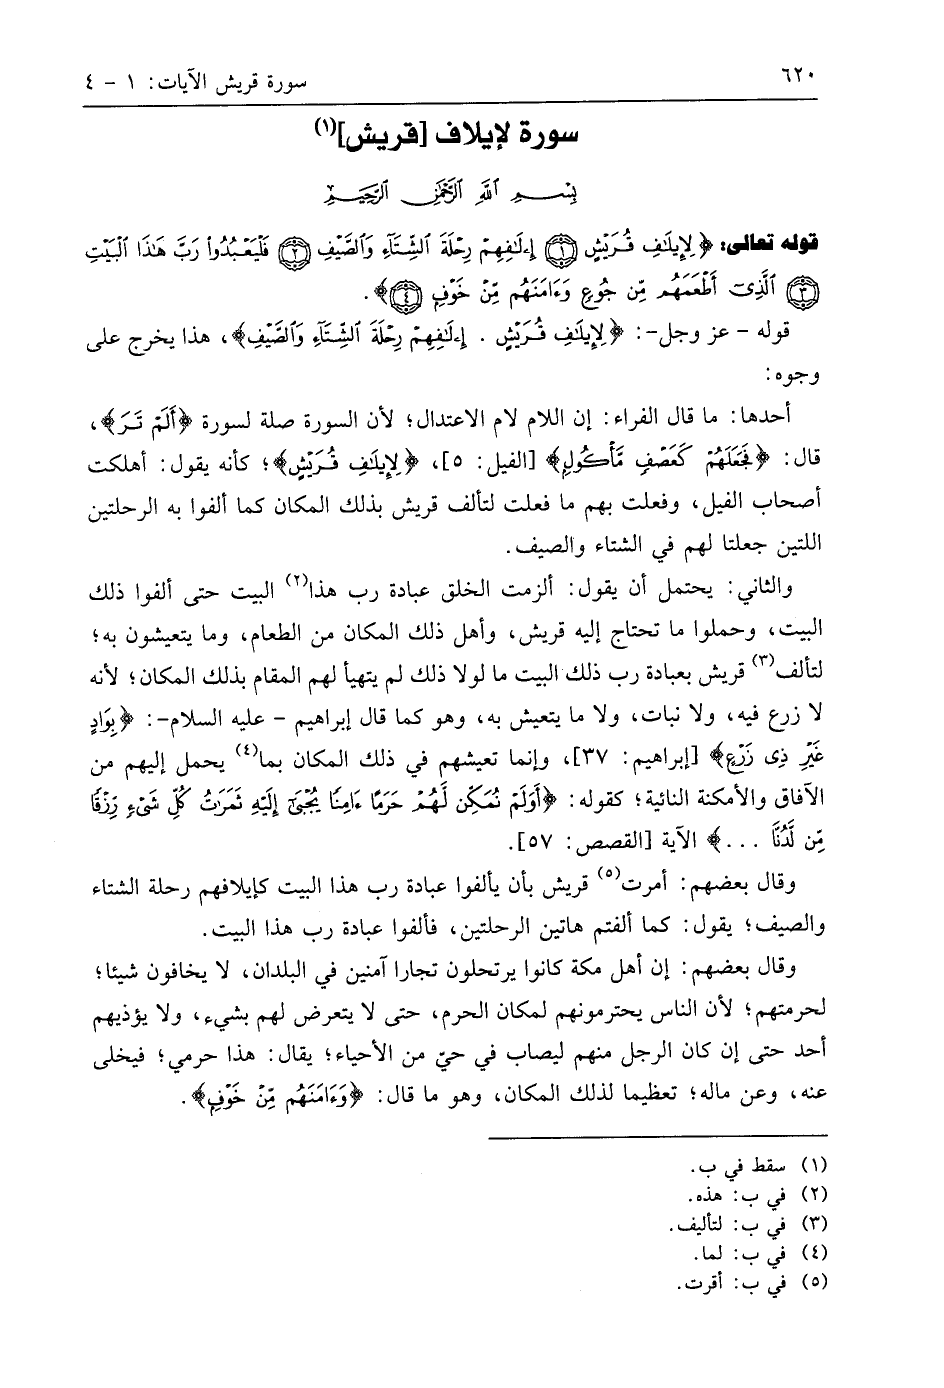 ٦٢٠
سورة قريش الآيات: ١ - ٤
سورة لإيلاف [قريش](١)
بِسْمِ ٱللَّهِ ٱلرَّحْمَٰنِ ٱلرَّحِيمِ
قوله تعالى: ﴿لِإِيلَٰفِ قُرَيْشٍ ١ إِۦلَٰفِهِمْ رِحْلَةَ ٱلشِّتَآءِ وَٱلصَّيْفِ ٢ فَلْيَعْبُدُوا۟ رَبَّ هَٰذَا ٱلْبَيْتِ
٣ ٱلَّذِىٓ أَطْعَمَهُم مِّن جُوعٍ وَءَامَنَهُم مِّنْ خَوْفٍ ٤﴾.
قوله - عز وجل-: ﴿لِإِيلَٰفِ قُرَيْشٍ . إِۦلَٰفِهِمْ رِحْلَةَ ٱلشِّتَآءِ وَٱلصَّيْفِ﴾، هذا يخرج على
وجوه:
أحدها: ما قال الفراء: إن اللام لام الاعتدال؛ لأن السورة صلة لسورة ﴿أَلَمْ تَرَ﴾،
قال: ﴿فَجَعَلَهُمْ كَعَصْفٍ مَّأْكُولٍ﴾ [الفيل: ٥]، ﴿لِإِيلَٰفِ قُرَيْشٍ﴾؛ كأنه يقول: أهلكت
أصحاب الفيل، وفعلت بهم ما فعلت لتألف قريش بذلك المكان كما ألفوا به الرحلتين
اللتين جعلتا لهم في الشتاء والصيف.
والثاني: يحتمل أن يقول: ألزمت الخلق عبادة رب هذا(٢) البيت حتى ألفوا ذلك
البيت، وحملوا ما تحتاج إليه قريش، وأهل ذلك المكان من الطعام، وما يتعيشون به؛
لتألف(٣) قريش بعبادة رب ذلك البيت ما لولا ذلك لم يتهيأ لهم المقام بذلك المكان؛ لأنه
لا زرع فيه، ولا نبات، ولا ما يتعيش به، وهو كما قال إبراهيم - عليه السلام-: ﴿بِوَادٍ
غَيْرِ ذِى زَرْعٍ﴾ [إبراهيم: ٣٧]، وإنما تعيشهم في ذلك المكان بما(٤) يحمل إليهم من
الآفاق والأمكنة النائية؛ كقوله: ﴿أَوَلَمْ نُمَكِّن لَّهُمْ حَرَمًا ءَامِنًا يُجْبَىٰٓ إِلَيْهِ ثَمَرَٰتُ كُلِّ شَىْءٍ رِّزْقًا
مِّن لَّدُنَّا ...﴾ الآية [القصص: ٥٧].
وقال بعضهم: أمرت(٥) قريش بأن يألفوا عبادة رب هذا البيت كإيلافهم رحلة الشتاء
والصيف؛ يقول: كما ألفتم هاتين الرحلتين، فألفوا عبادة رب هذا البيت.
وقال بعضهم: إن أهل مكة كانوا يرتحلون تجارا آمنين في البلدان، لا يخافون شيئا؛
لحرمتهم؛ لأن الناس يحترمونهم لمكان الحرم، حتى لا يتعرض لهم بشيء، ولا يؤذيهم
أحد حتى إن كان الرجل منهم ليصاب في حيّ من الأحياء؛ يقال: هذا حرمي؛ فيخلى
عنه، وعن ماله؛ تعظيما لذلك المكان، وهو ما قال: ﴿وَءَامَنَهُم مِّنْ خَوْفٍ﴾.
(١) سقط في ب.
(٢) في ب: هذه.
(٣) في ب: لتأليف.
(٤) في ب: لما.
(٥) في ب: أقرت.